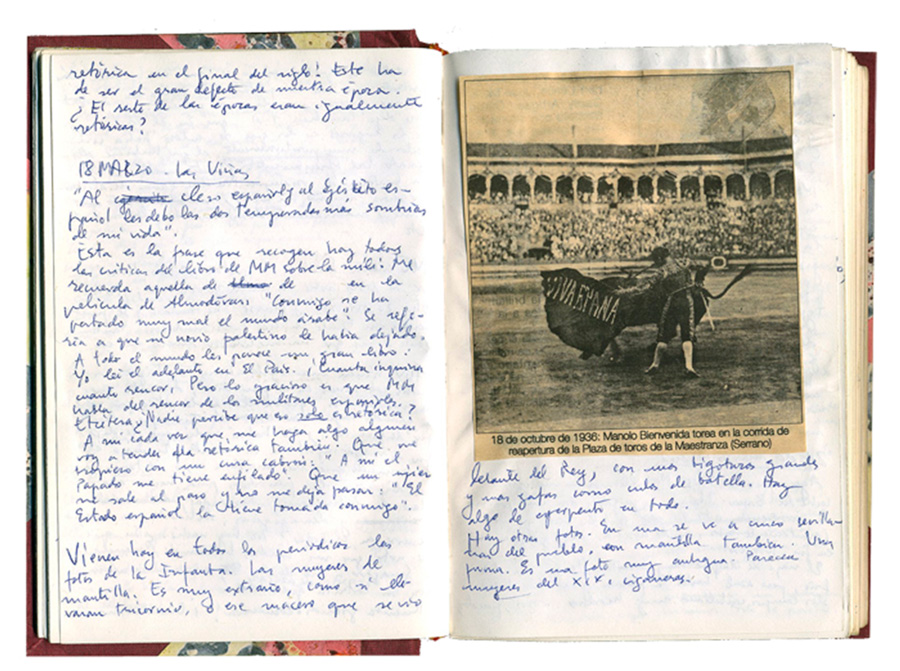 retórica en el final del siglo! Este ha
de ser el gran defecto de nuestra época.
¿El resto de las épocas eran igualmente
retóricas?
18 MARZO - Las Viñas
"Al clero español y al Ejército es-
pañol les debo las dos temporadas más sombrías
de mi vida".
Esta es la frase que recogen hoy todas
las críticas del libro de MM sobre la mili. Me
recuerda aquella de en la
película de Almodóvar: "Conmigo se ha
portado muy mal el mundo árabe". Se refe-
ría a que un novio palestino la había dejado.
A todo el mundo les parece un gran libro.
Yo leí el adelanto en El País. ¡Cuanta inquina
cuanto rencor! Pero lo gracioso es que MM
habla del rencor de los militares españoles.
Etcétera. ¿Nadie percibe que eso solo es retórica?
A mi cada vez que me haga algo alguien
voy a tender a la retórica también. Que me
tropiezo con un cura cabrón: "A mí el
Papado me tiene enfilado". Que un
me sale al paso y no me deja pasar: "El
Estado español la tiene tomada conmigo".
Vienen hoy en todos los periódicos las
fotos de la Infanta. Las mujeres de
mantilla. Es muy extraño, como si lle-
varan tricornio, y ese macero que se vio
VIVA ESPAÑA
18 de octubre de 1936: Manolo Bienvenida torea en la corrida de
reapertura de la Plaza de toros de la Maestranza (Serrano)
delante del Rey, con unos bigotazos grandes
y unas gafas como culos de botella. Hay
algo de esperpento en todo.
Hay otras fotos. En una se ve a cinco sevilla-
nas del pueblo, con mantilla también. Una
Es una foto muy antigua. Parecen
mujeres del XIX, cigarreras.